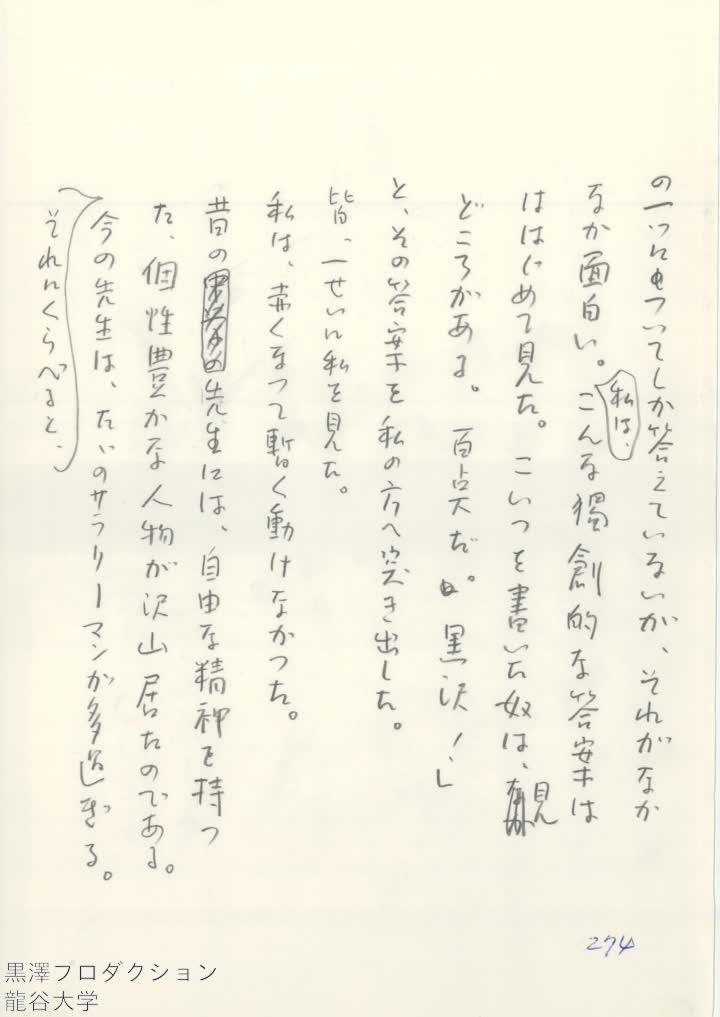 の一つにもついてしか答えていないが、それがなか
なか面白い。私は、こんな獨創的な答案は
はじめて見た。こいつを書いた奴は、見
どころがある。百点だ。黒沢！」
と、その答案を私の方へ突き出した。
皆、一せいに私を見た。
私は、赤くなって暫く動けなかった。
昔の先生には、自由な精神を持つ
た、個性豊かな人物が沢山居たのである。
それにくらべると、
今の先生は、たゞのサラリーマンが多過ぎる。
274
黒澤プロダクション
龍谷大学